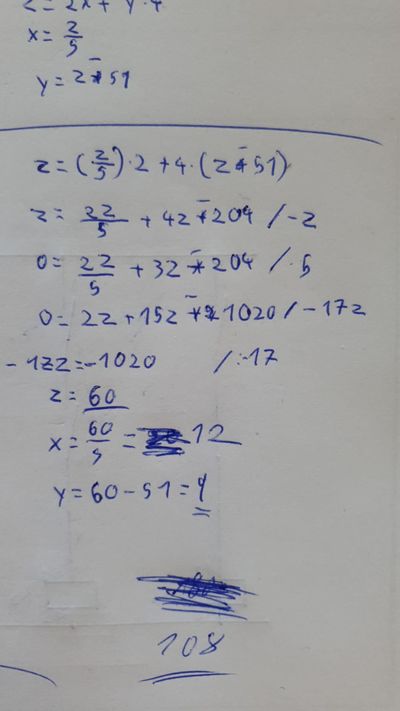 z=2x+y·4
x=z/5
y=z-51
z=(z/5)·2+4·(z-51)
z=2z/5+4z-204/-z
0=2z/5+3z-204/·5
0=2z+15z-1020/-17z
-17z=-1020 /:-17
z=60
x=60/5=12
y=60-51=9
108